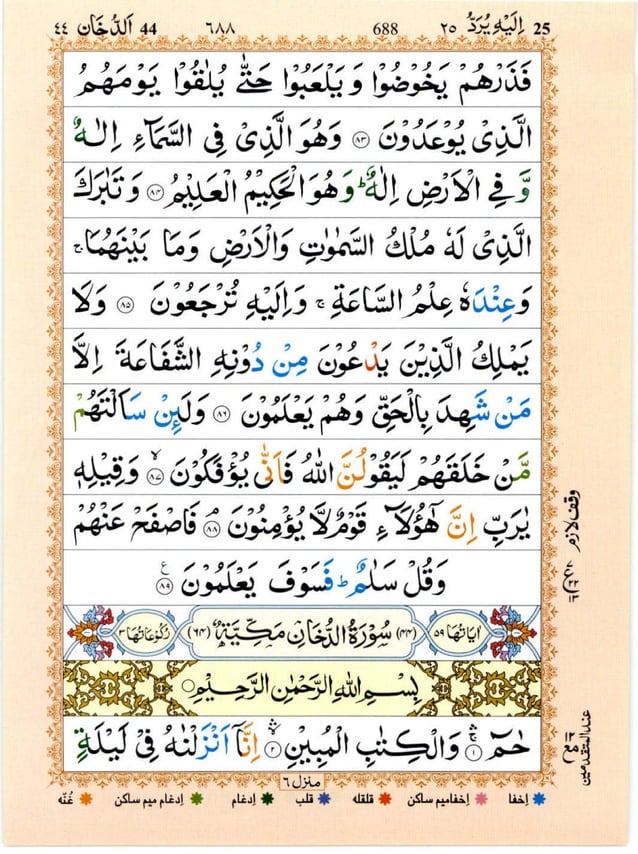 ٤٤ اَلدُّخَان 44 ٦٨٨ 688 ٢٥ اِلَيْهِ يُرَدُّ 25
فَذَرْهُمْ يَخُوْضُوْا وَ يَلْعَبُوْا حَتّٰى يُلٰقُوْا يَوْمَهُمُ
الَّذِىْ يُوْعَدُوْنَ ﴿٨٣﴾ وَهُوَ الَّذِىْ فِى السَّمَآءِ اِلٰـهٌ
وَّ فِى الْاَرْضِ اِلٰهٌ ؕ وَهُوَ الْحَكِيْمُ الْعَلِيْمُ ﴿٨٤﴾ وَ تَبٰرَكَ
الَّذِىْ لَهٗ مُلْكُ السَّمٰوٰتِ وَالْاَرْضِ وَمَا بَيْنَهُمَا ۚ
وَعِنْدَهٗ عِلْمُ السَّاعَةِ ۚ وَاِلَيْهِ تُرْجَعُوْنَ ﴿٨٥﴾ وَلَا
يَمْلِكُ الَّذِيْنَ يَدْعُوْنَ مِنْ دُوْنِهِ الشَّفَاعَةَ اِلَّا
مَنْ شَهِدَ بِالْحَقِّ وَهُمْ يَعْلَمُوْنَ ﴿٨٦﴾ وَلَئِنْ سَاَلْتَهُمْ
مَّنْ خَلَقَهُمْ لَيَقُوْلُنَّ اللّٰهُ فَاَنّٰى يُؤْفَكُوْنَ ﴿٨٧﴾ وَقِيْلِهٖ
يٰرَبِّ اِنَّ هٰٓؤُلَاۤءِ قَوْمٌ لَّا يُؤْمِنُوْنَ ﴿٨٨﴾ فَاصْفَحْ عَنْهُمْ
وَقُلْ سَلٰمٌ ؕ فَسَوْفَ يَعْلَمُوْنَ ﴿٨٩﴾ ع
وقف لازم
اٰيَاتُهَا ٥٩ (٤٤) سُوْرَةُ الدُّخَانِ مَكِّيَّةٌ (٦٤) رُكُوْعَاتُهَا ٣
بِسْمِ اللّٰهِ الرَّحْمٰنِ الرَّحِيْمِ
حٰمٓ ﴿١﴾ وَالْكِتٰبِ الْمُبِيْنِ ﴿٢﴾ اِنَّاۤ اَنْزَلْنٰهُ فِىْ لَيْلَةٍ
عند المتقدمين
منزل ٦
اِخفا اِخفامیم ساکن قلقله قلب اِدغام اِدغام میم ساکن غُنّه